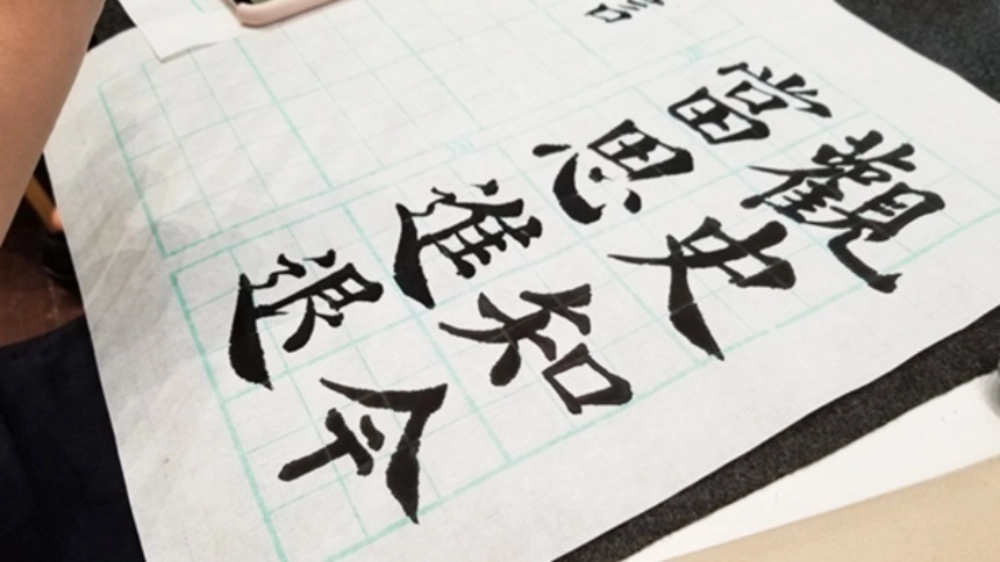 觀史知今
當思進退